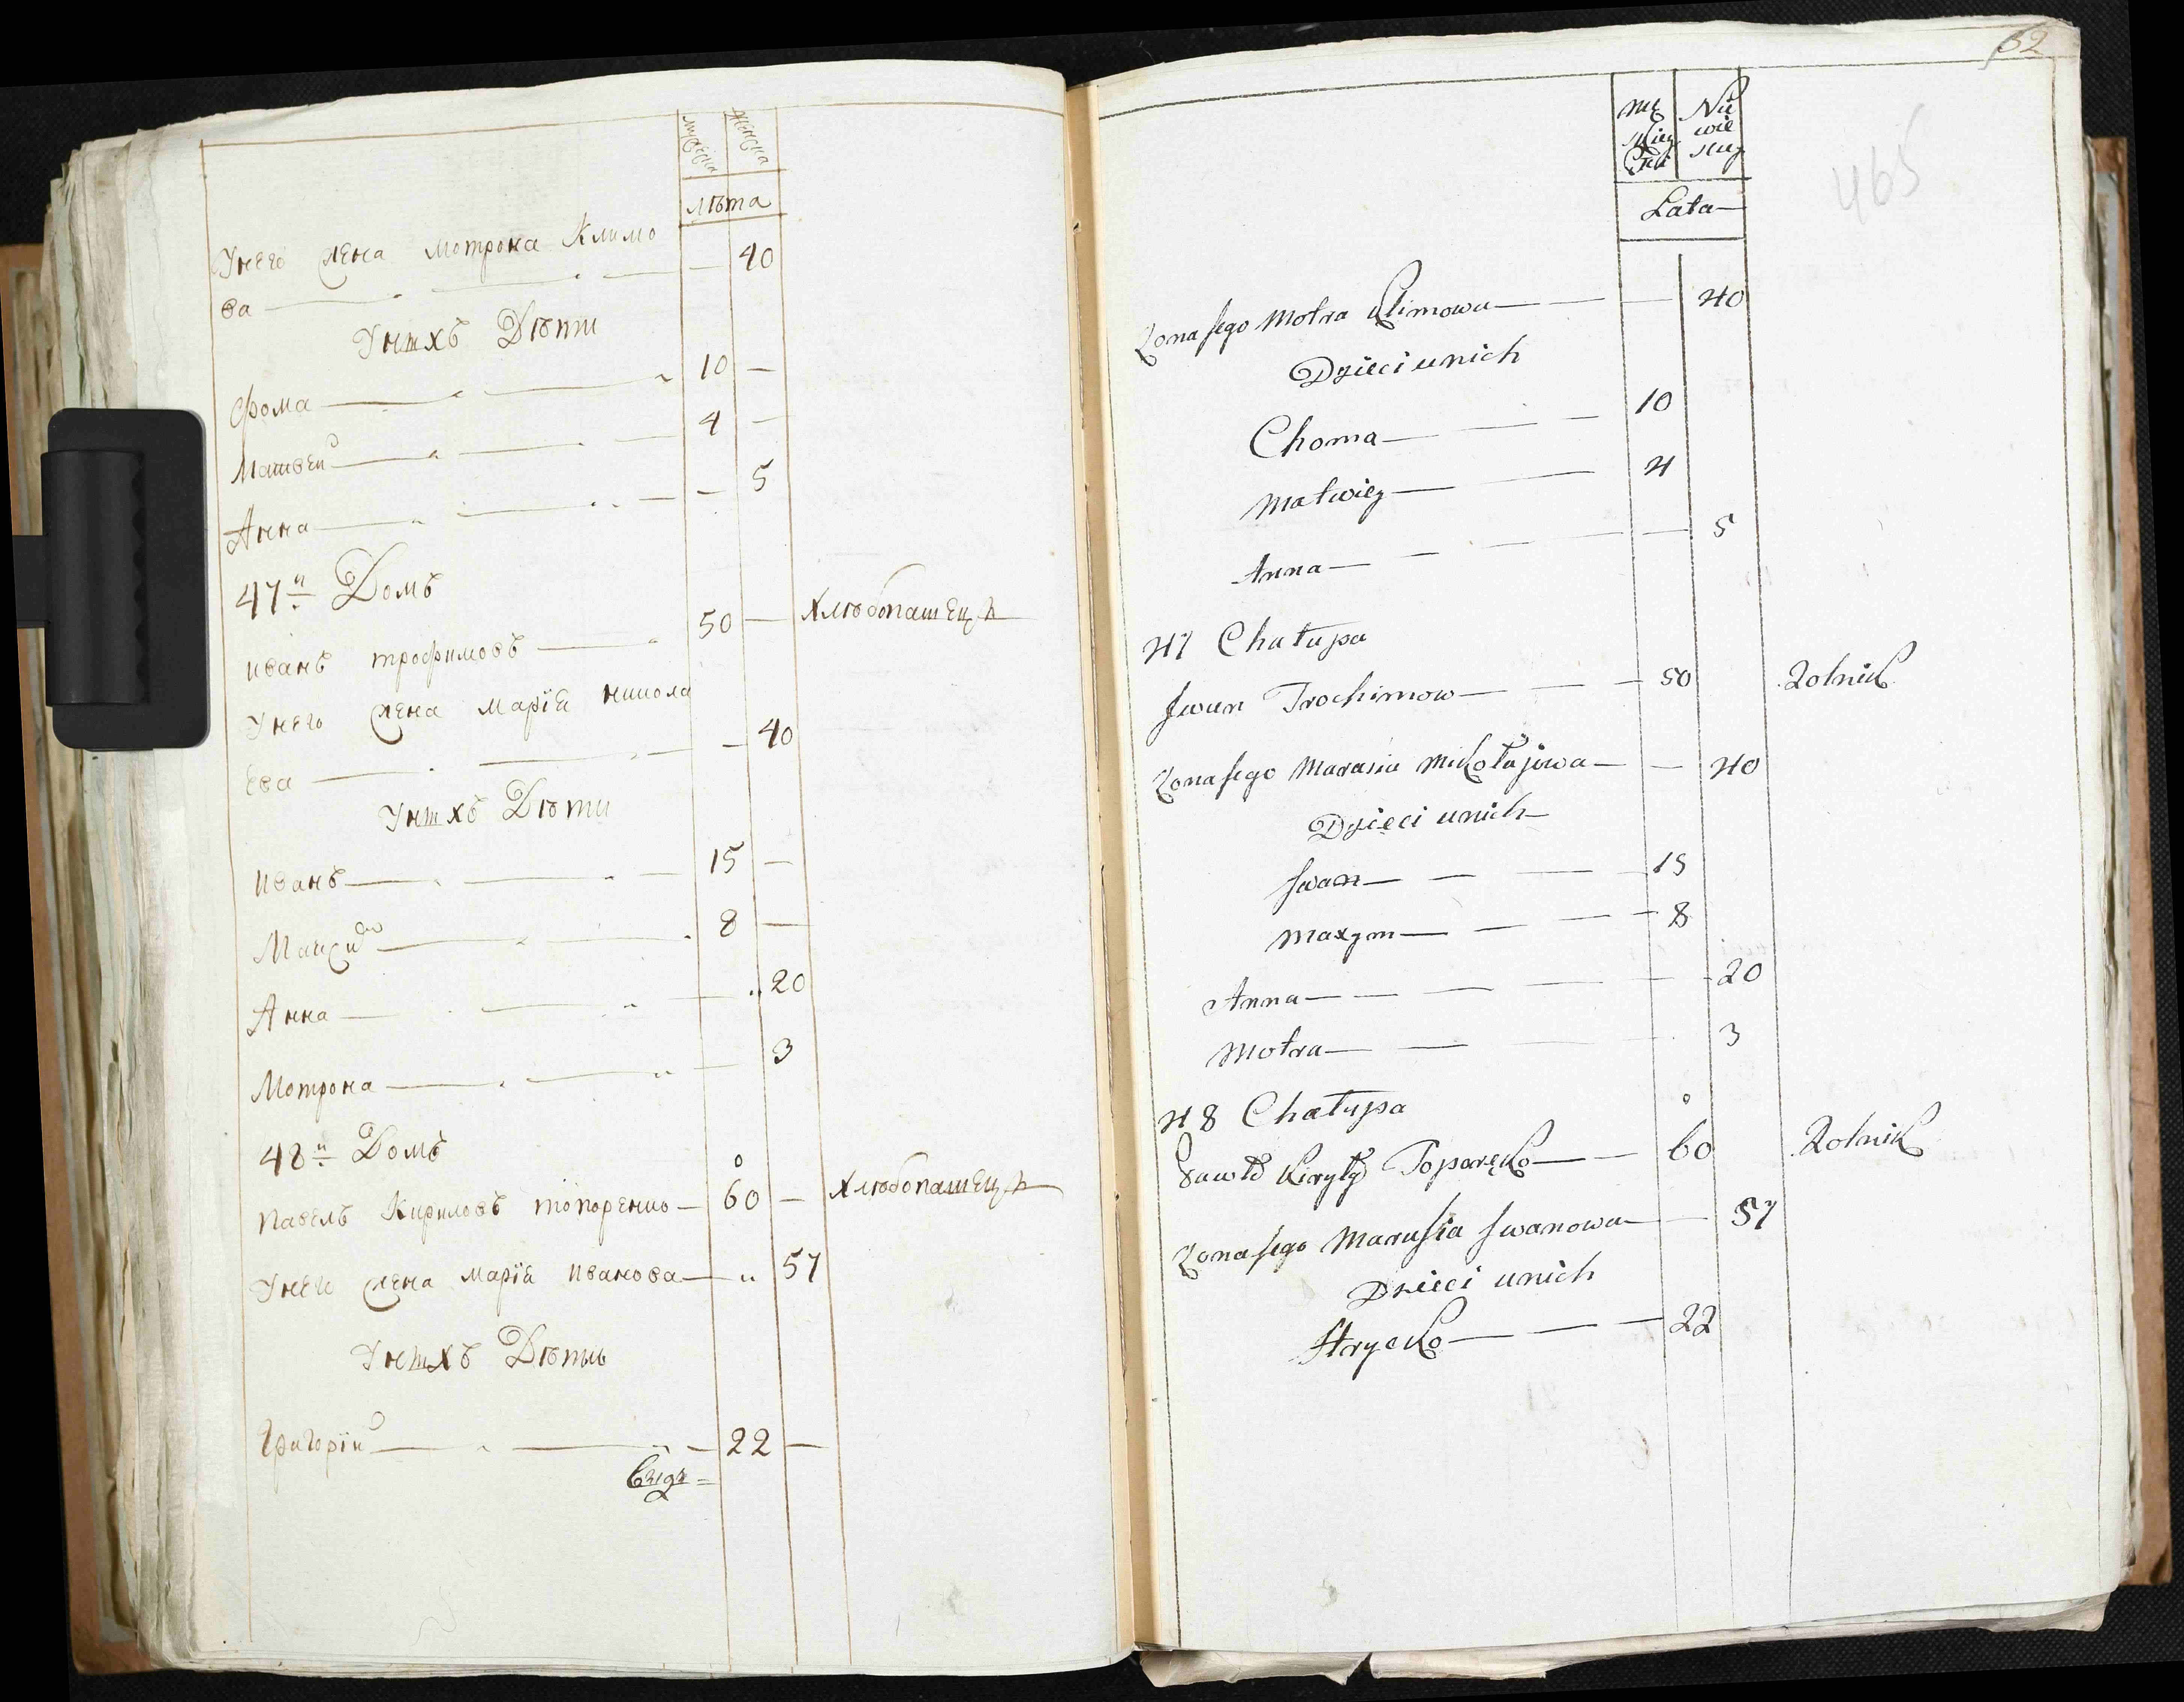 мужеска женска
лѣта
Унего жена Мотрона Климо
ва — — 40
Унихъ Дѣти
Фома — 10 —
Матвей — 4 —
Анна — — 5
47й Домъ
Иванъ Трофимовъ — 50 — хлѣбопашецъ
Унего жена Марія Никола
ева — — 40
Унихъ Дѣти
Иванъ — 15 —
Максим — 8 —
Анна — 20
Мотрона — 3
48й Домъ
Павелъ Кириловъ топоренко — 60 — хлѣбопашецъ
Унеи жена Марія Иванова — 57
Унихъ Дѣти
Григорій — 22 —
62
465
Lata
Zona jego Motra Klimowa — — 40
Dzieci unich
Choma — 10
Matwiey — 4
Anna — — 5
47 Chałupa
Jwan Trochimow — 50 Rolnik
Zona jego Marusia Mikołajowa — — 40
Dzieci unich
Jwan — 15
Maxym — 8
Anna — 20
Motra — 3
48 Chałupa
Pawło Kiryły Toporęko — 60 Rolnik
Zona jego Marusia Jwanowa — 57
Dzieci unich
Hrycko — 22